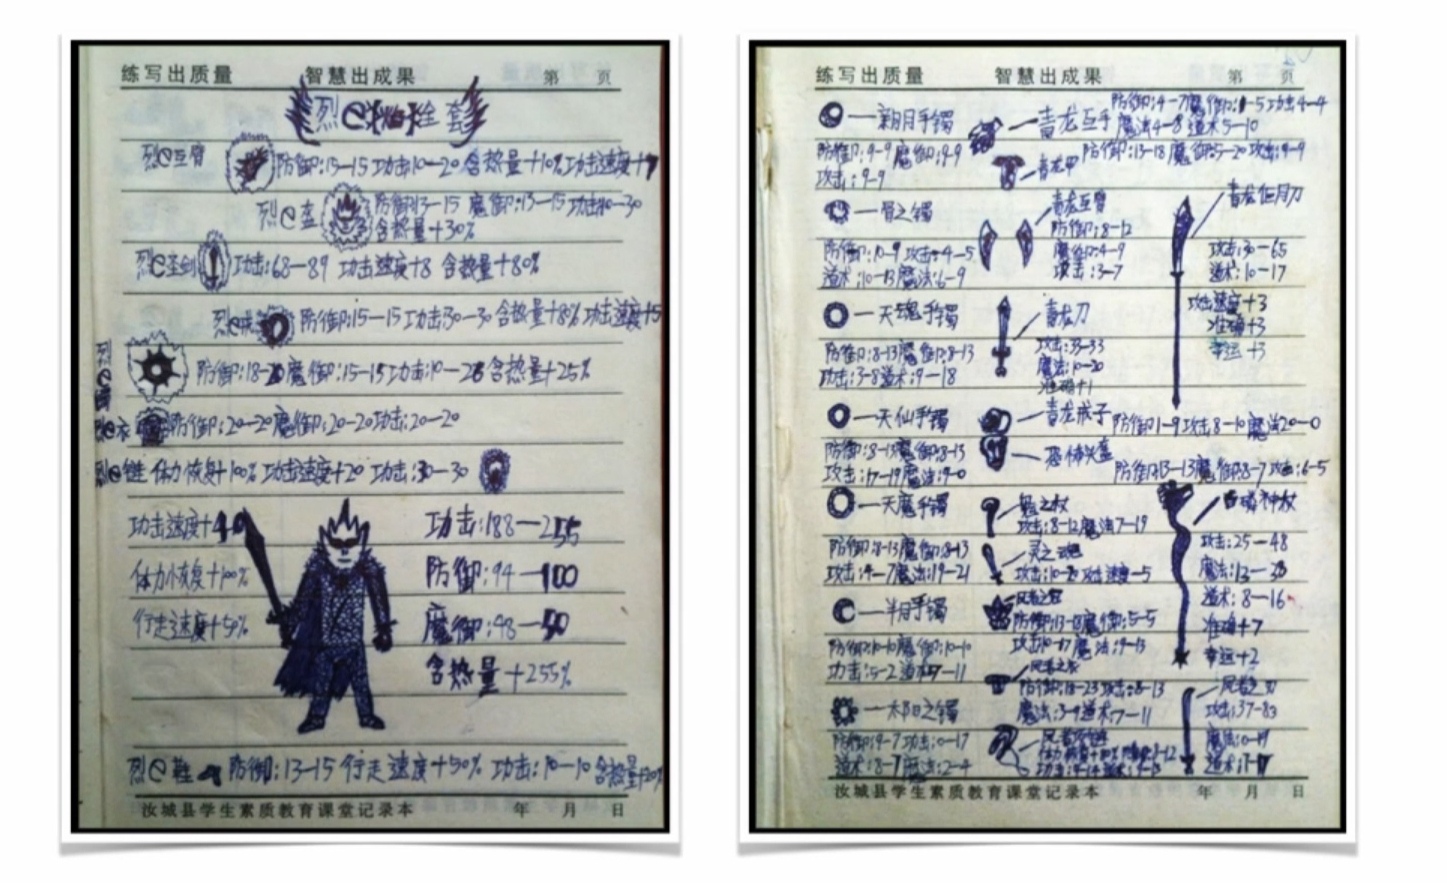 练写出质量 智慧出成果 第 页
烈e 全套
烈e互臂
防御:15-15 功击10-20 含热量+10% 功击速度+
烈e盔
防御13-15 魔御:13-15 功击10-30
含热量+30%
烈e圣剑 功击:68-89 功击速度+8 含热量+80%
烈e戒 防御:15-15 功击30-30 含热量+8% 功击速度+5
烈e
防御:18-20 魔御:15-15 功击:10-28 含热量+25%
烈e衣 防御:20-20 魔御:20-20 功击:20-20
烈e链 体力恢复+100% 功击速度+20 功击:30-30
功击速度+40
体力恢复+100%
行走速度+50%
功击:188-255
防御:94-100
魔御:48-50
含热量+255%
烈e鞋 防御:13-15 行走速度+50% 功击:10-10 含热量+20%
汝城县学生素质教育课堂记录本 年 月 日
练写出质量 智慧出成果 第 页
—新月手镯
防御:9-9 魔御:9-9
攻击:9-9
—骨之镯
防御:10-9 攻击:4-5
道术:10-13 魔法:6-9
—天魂手镯
防御:8-13 魔御:8-13
功击:3-8 道术:9-18
—天仙手镯
防御:8-13 魔御:8-13
攻击:17-19 魔法:9-0
—天魔手镯
防御:8-13 魔御:8-13
攻击:4-7 魔法:19-21
—半月手镯
防御:10-10 魔御:10-10
功击:5-2 道术7-11
—太阳之镯
防御:9-7 功击:0-17
道术:8-7 魔法:2-4
—青龙互手
防御:4-7 魔御:1-5 功击4-4
魔法4-8 道术5-10
青龙甲
防御:13-18 魔御:5-20 攻击:9-9
青龙互臂
防御:8-12
魔御:4-9
攻击:3-7
青龙刀
攻击:33-33
魔法:10-20
准确+1
—青龙戒子
防御1-9 攻击8-10 魔法20-0
—恐怖头盔
防御:13-13 魔御:8-7 攻击:6-5
—魁之杖
攻击:8-12 魔法7-19
—灵之魂
攻击:10-20 攻击速度-5
防御:13-18 魔御:5-5
攻击10-17 魔法:9-13
防御:18-23 攻击:8-13
魔法:3-9 道术:7-11
青龙偃月刀
攻击:30-65
道术:10-17
攻击速度+3
准确+3
幸运+3
神杖
攻击:25-48
魔法:13-38
道术:8-16
准确+7
幸运+2
攻击:37-83
汝城县学生素质教育课堂记录本 年 月 日